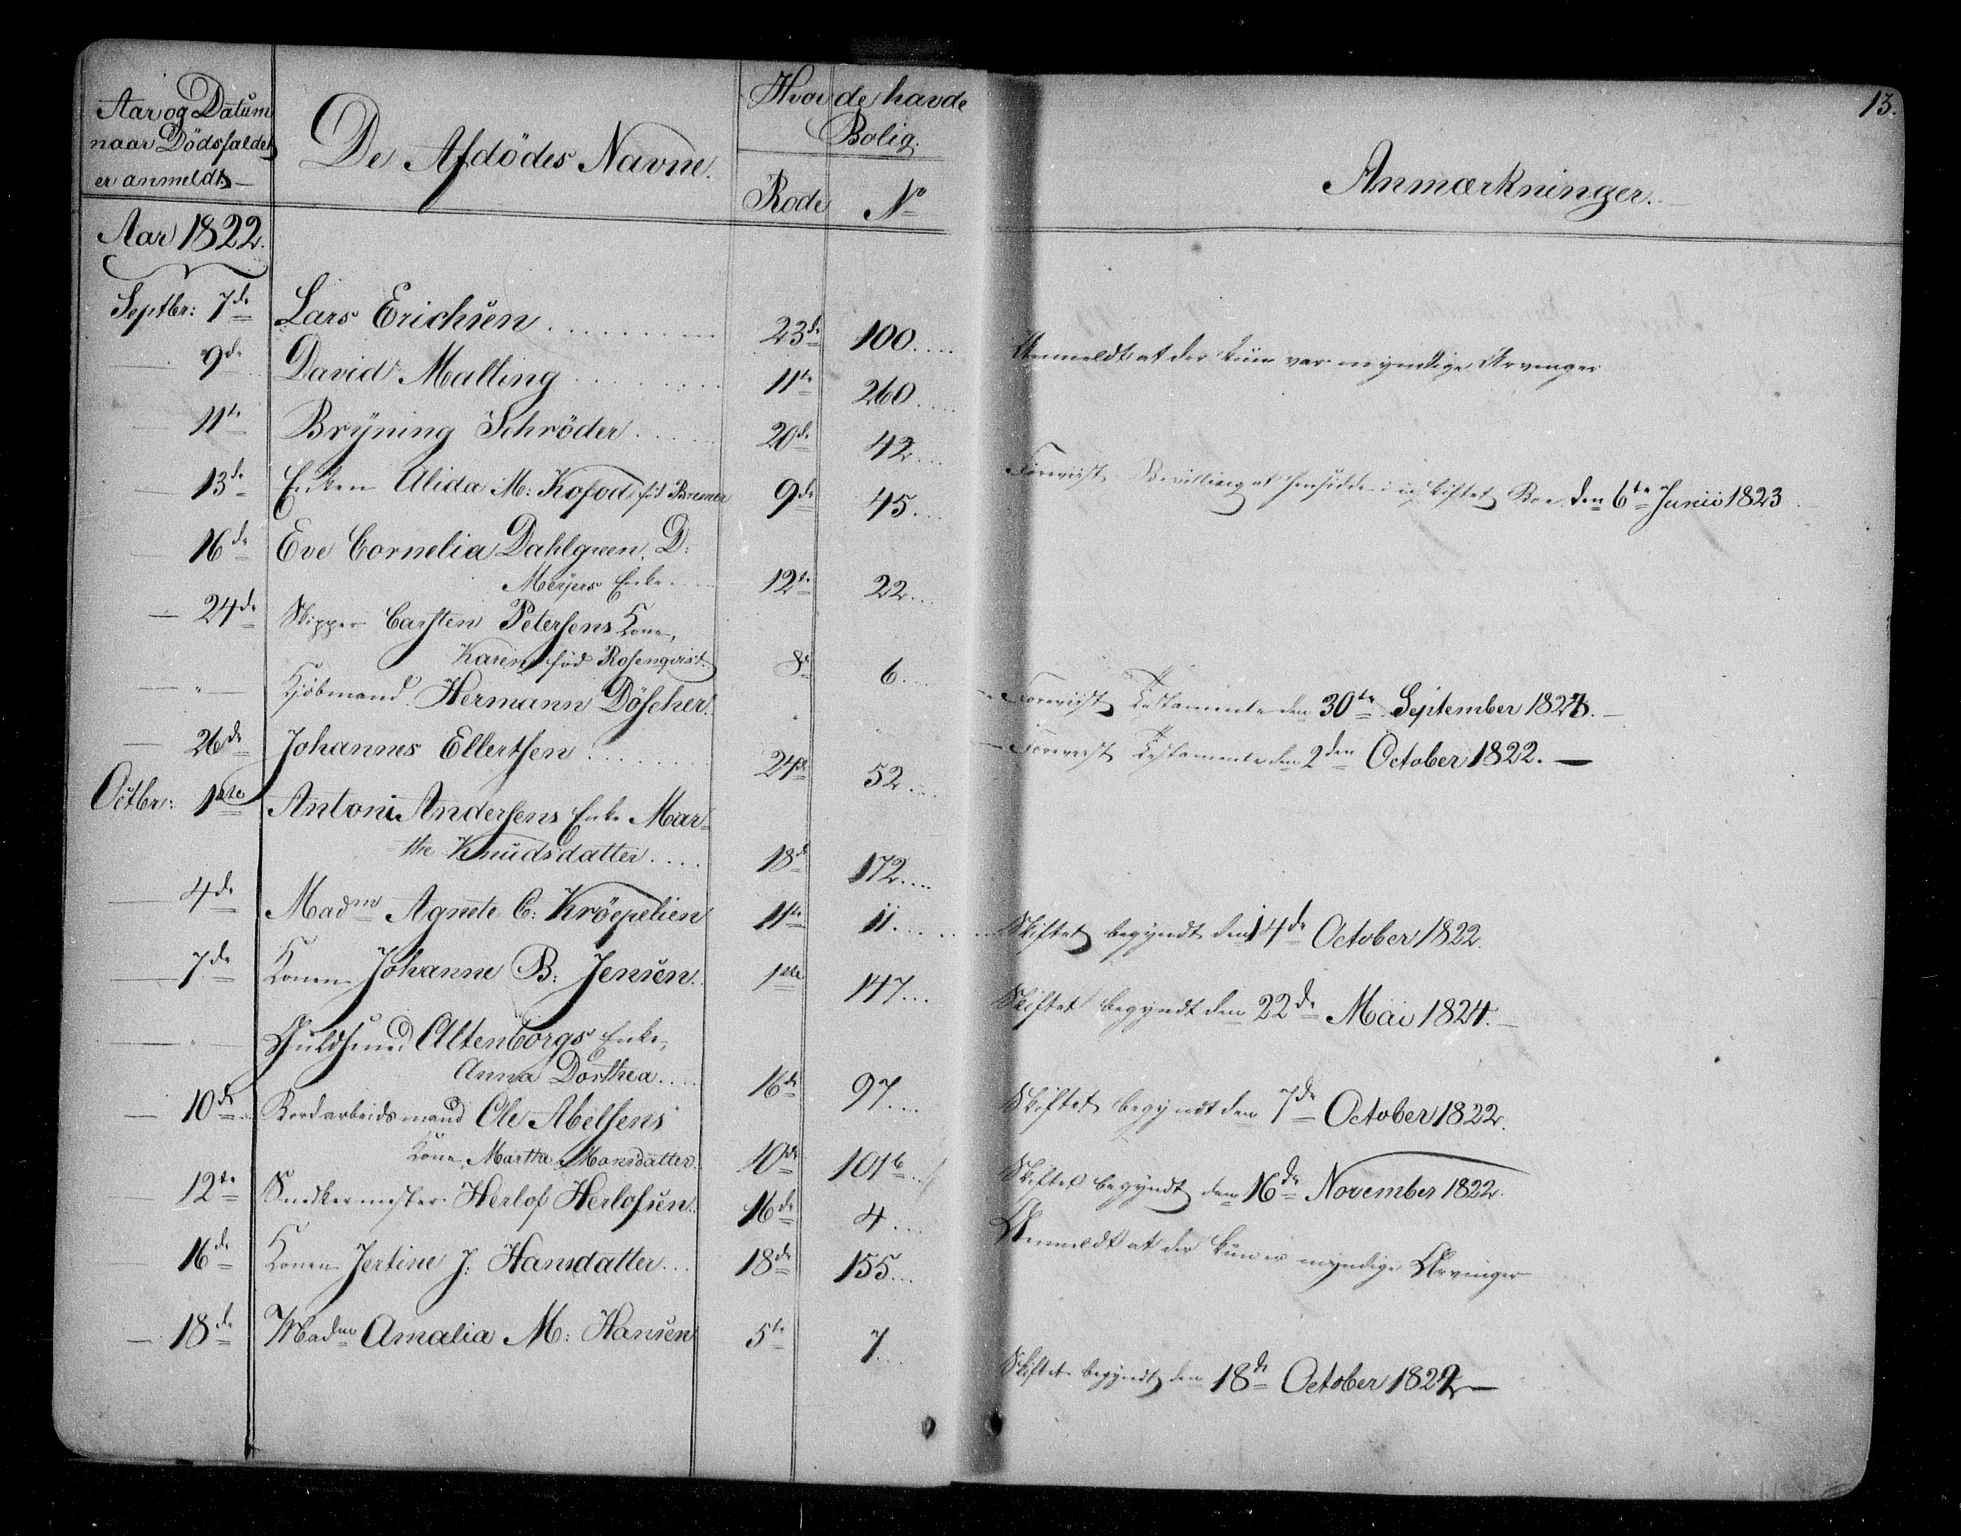 13.
Aar og Datum
naar Dödsfaldet
er anmeldt.
De Afdödes Navne.
Hvor de havde
Bolig.
Rode No
Anmærkninger.
Aar 1822.
Septbr: 7de Lars Erichsen 23de 100
9de David Malting 11te 260 Anmeldt at der kun var myndige Arvinger
11te Brÿning Schröder 20de 42
13de Enken Alida M: Kofod föd Bremer 9de 45 Foreviist Bevilling at hensidde i uskiftet Boe den 6te Junii 1823
16de Eve Cornelia Dahlgreen, D:
Meÿers Enke 12te 22
24de Skipper Carsten Petersens Kone,
Karen föd Rosenqvist 8de 6
" Kjöbmand Hermann Döscher. " Foreviist Testamente den 30te September 1822.
26de Johannes Ellertsen 24de 52 Foreviist Testamente den 2den October 1822.
Octbr: 1ste Antoni Andersens Enke Mar-
the Knudsdatter 18de 172
4de Madm Agnete C: Kröepelien 11te 11 Skiftet begyndt den 14de October 1822.
7de Konen Johanne B: Jensen 1ste 147 Skiftet begyndt den 22de Mai 1824.
" Guldsmed Altenborgs Enke,
Anna Dorthea 16de 97 Skiftet begyndt den 7de October 1822.
10de Bordarbeidsmand Ole Abelsens
Kone, Martha Monsdatter 10de 101b Skiftet begyndt den 16de November 1822.
12te Snedkermester Herlof Herlofsen 16de 4 Anmeldt at der kun er myndige Arvinger
16de Konen Jertine J: Hansdatter 18de 155
18de Madme Amalia M: Hansen 5te 7 Skiftet begyndt den 18de October 1822